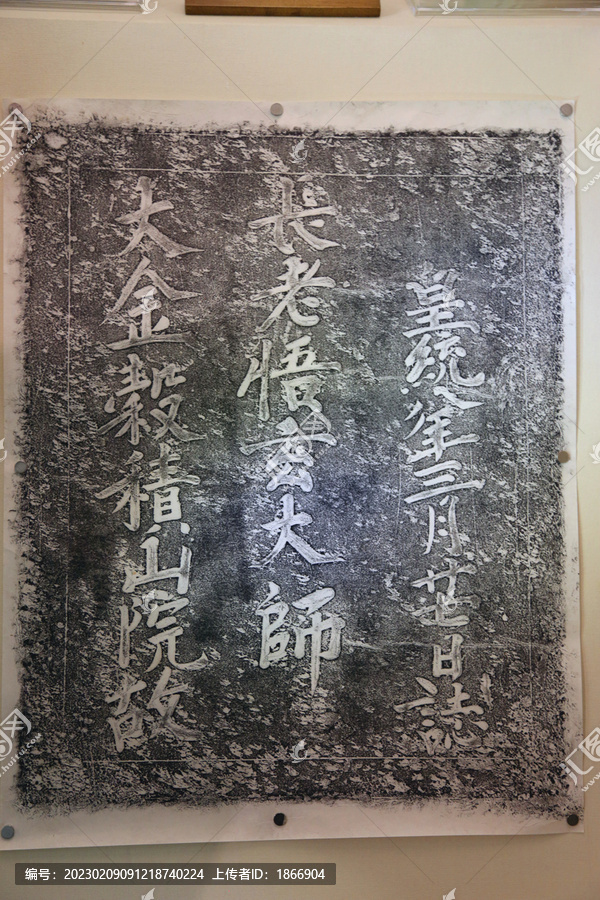 大金穀積山院故
長老悟玄大師
皇統八年三月廿日誌
编号：20230209091218740224 上传者ID：1866904